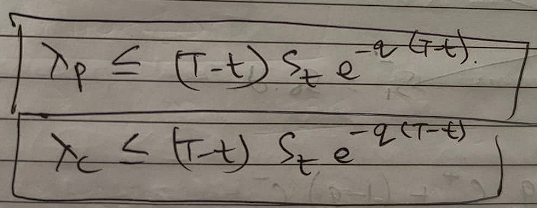 λ_P ≤ (T-t) S_t e^{-q(T-t)}.
λ_c ≤ (T-t) S_t e^{-q(T-t)}